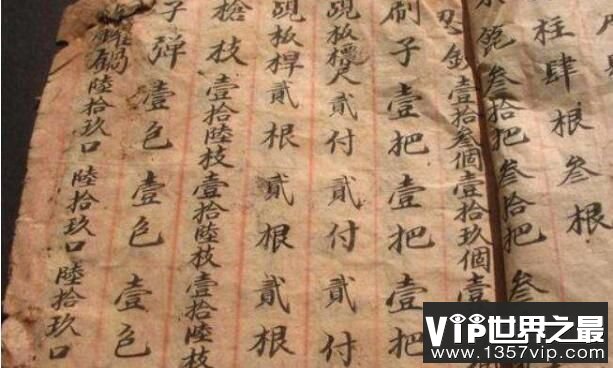 柱肆根叁根
叁拾把叁拾把叁
壹拾叁個壹拾玖個壹
刷子壹把壹把壹把
覘板貳付貳付貳付
覘板桿貳根貳根貳根
槍枝壹拾陸枝壹拾陸枝壹拾陸枝
子彈壹色壹色壹色
鍋陸拾玖口陸拾玖口陸拾玖口
VIP世界之最
www.1357vip.com